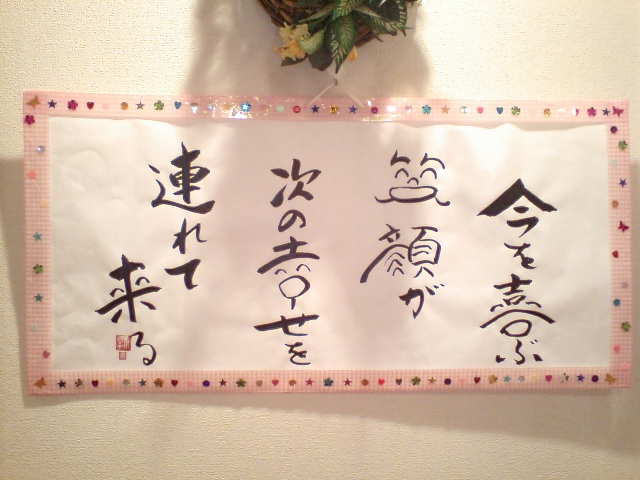 今を喜ぶ
笑顔が
次の幸せを
連れて
来る